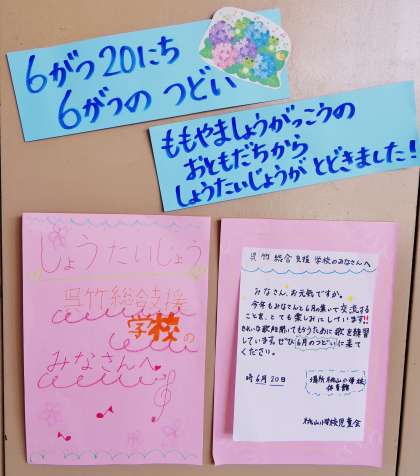 6がつ20にち
6がつの つどい
ももやましょうがっこうの
おともだちから
しょうたいじょうが とどきました!
しょうたいじょう
呉竹総合支援
学校の
みなさんへ
呉竹総合支援学校のみなさんへ
みなさん、お元気ですか。
今年もみなさんと6月の集いで交流する
ことを、とても楽しみにしています!!
きれいな歌を聞いてもらうために歌を練習
しています。ぜひ6月のつどいに来て
ください。
時6月20日
場所桃山小学校
体育館
桃山小学校児童会